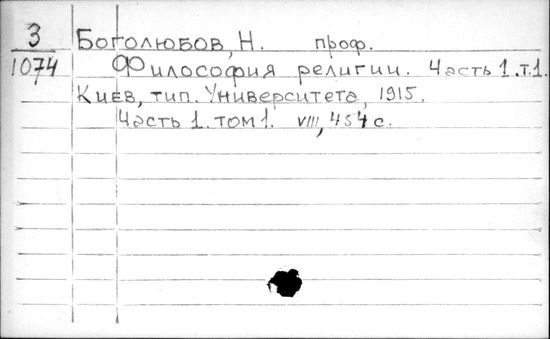 3
1074
Боголюбов, Н. проф.
Философия религии. Часть 1.т.1.
Киев, тип. Университета, 1915.
Часть 1. том 1. VIII, 454 с.